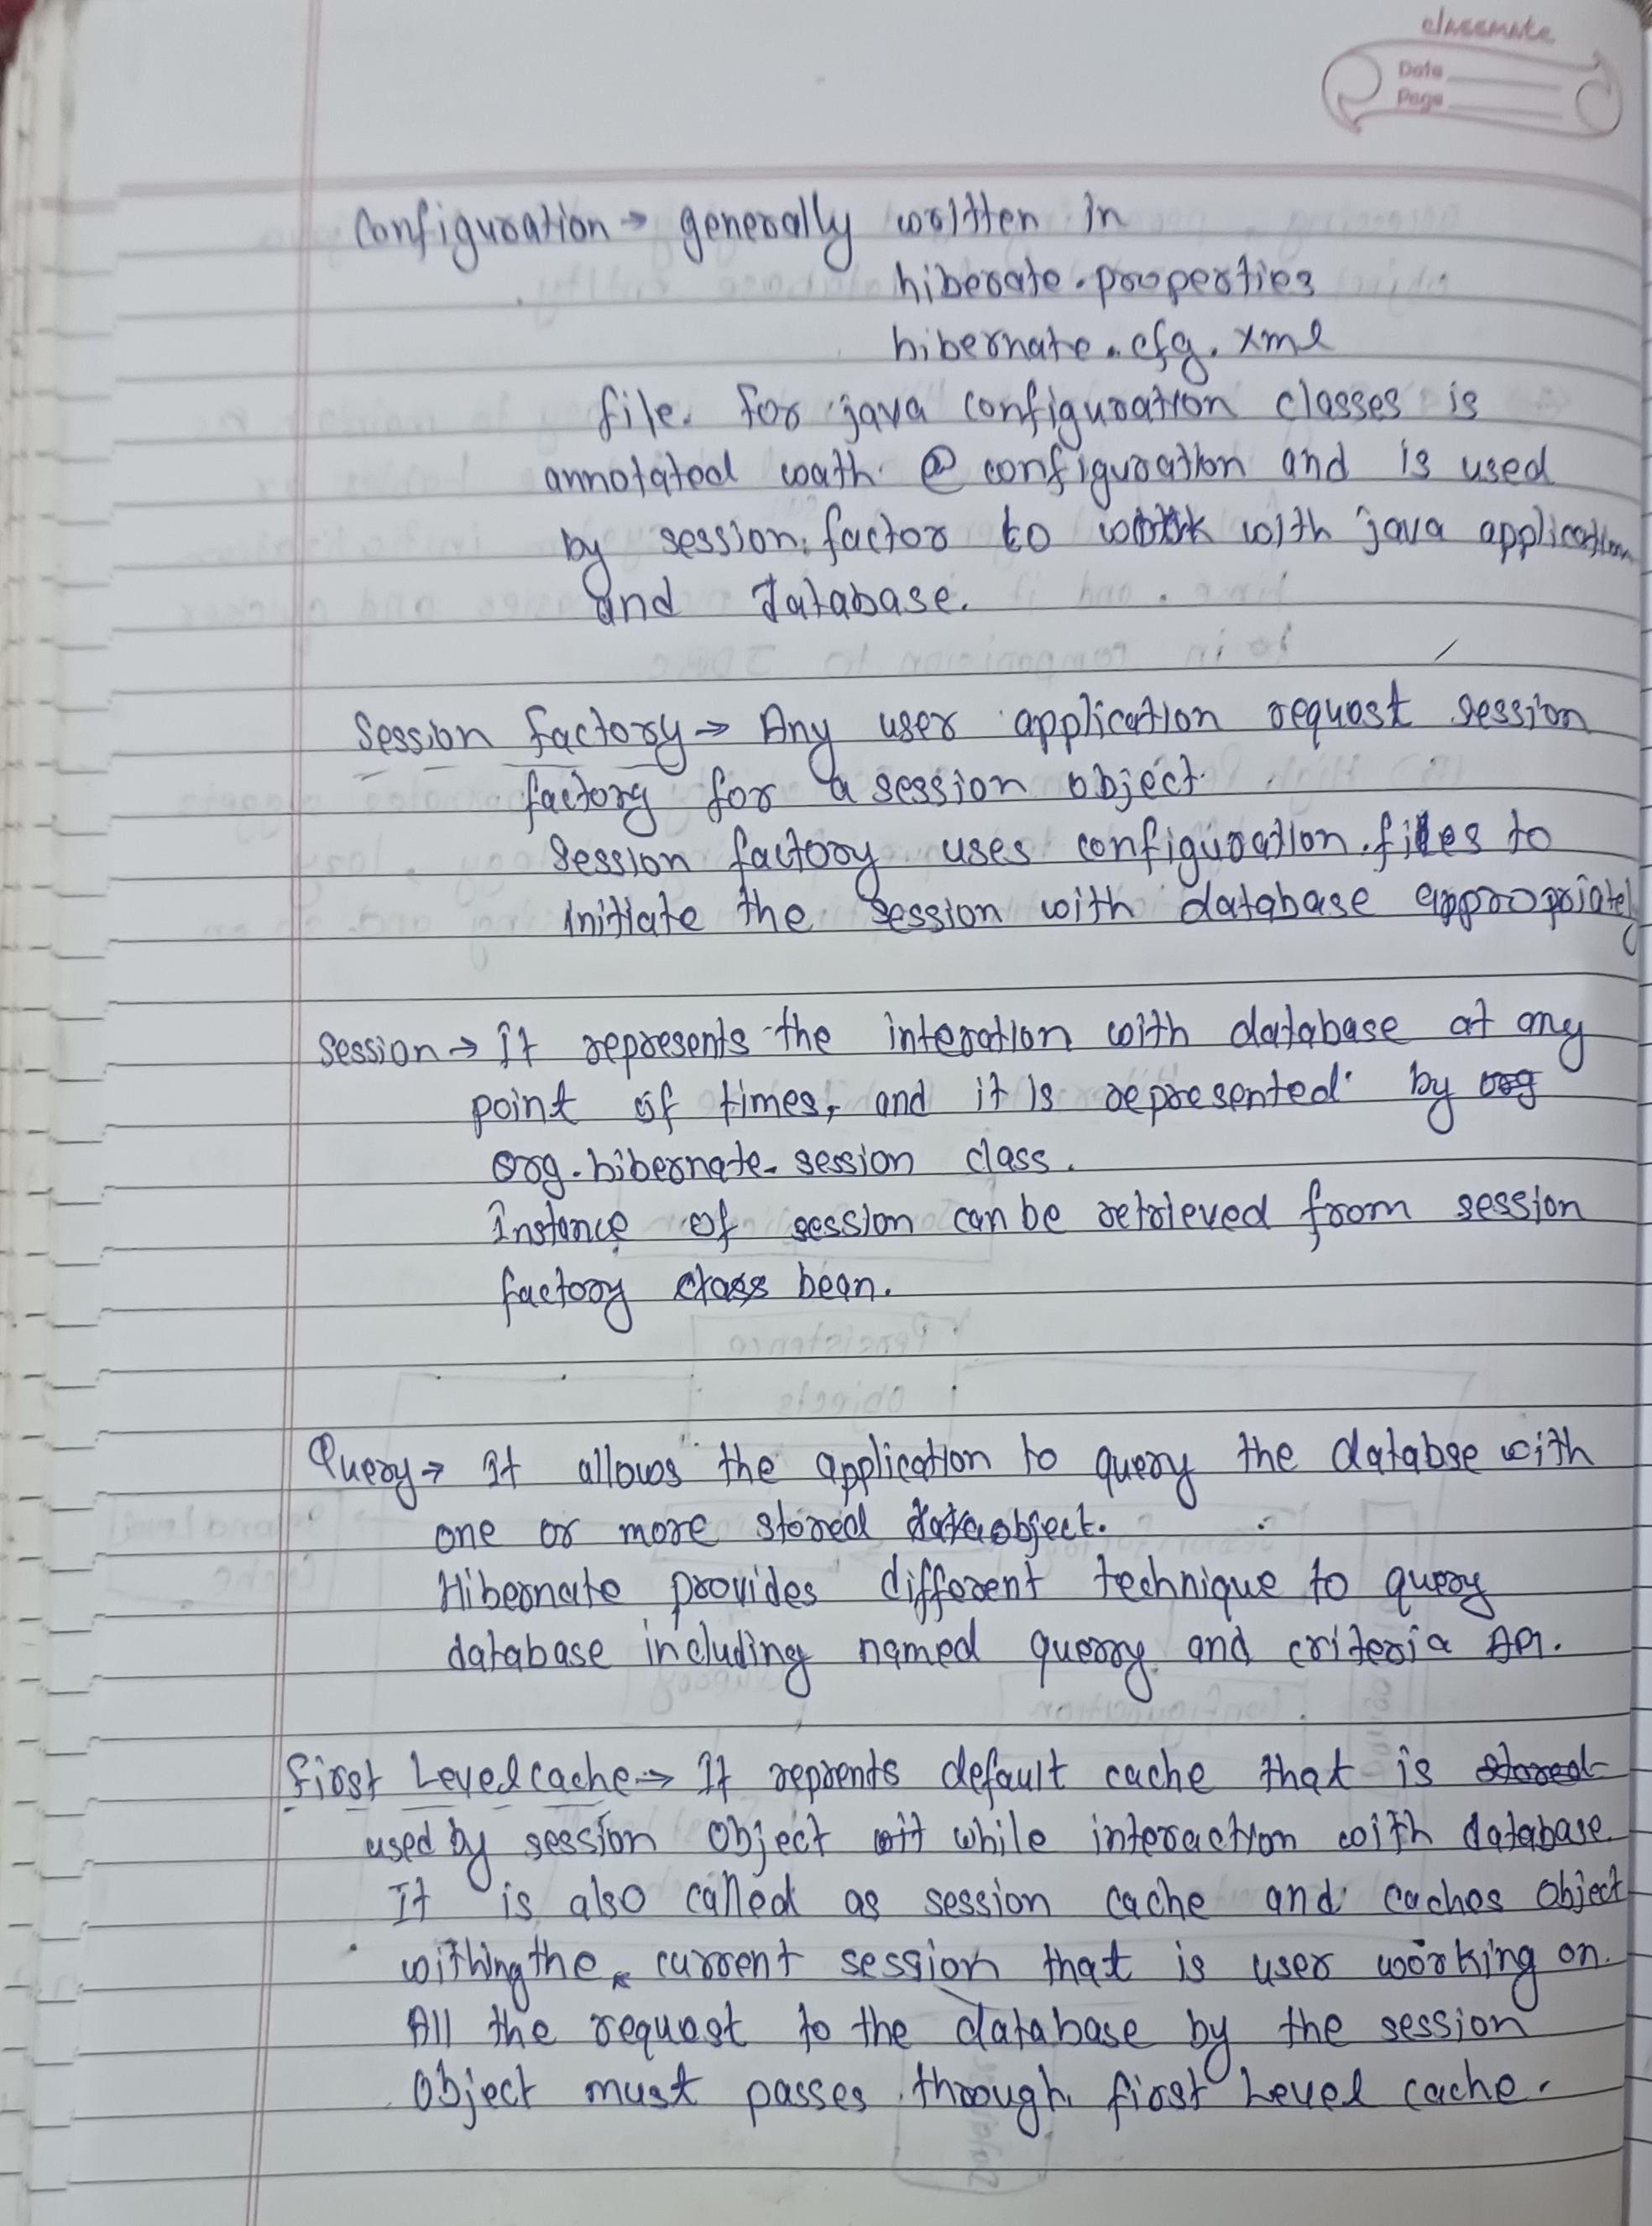 classmate
Date
Page
Configuration → generally written in
hiberate.properties
hibernate.cfg.xml
file. for java configuration classes is
annotated wath @ configuration and is used
by session factor to work with java application
and database.
Session factory → Any user application request session
factory for a session object.
Session factory uses configuration files to
initiate the session with database appropriately
Session → It represents the interation with database at any
point of times, and it is represented by org
org.hibernate.session class.
Instance of session can be retrieved from session
factory class bean.
Query → It allows the application to query the databse with
one or more stored data object.
Hibernate provides different technique to query
database including named query and criteria API.
First Level cache → It reprents default cache that is stored
used by session object wit while interaction with database.
It is also called as session cache and caches object
withing the current session that is user working on.
All the request to the database by the session
object must passes through first Level cache.